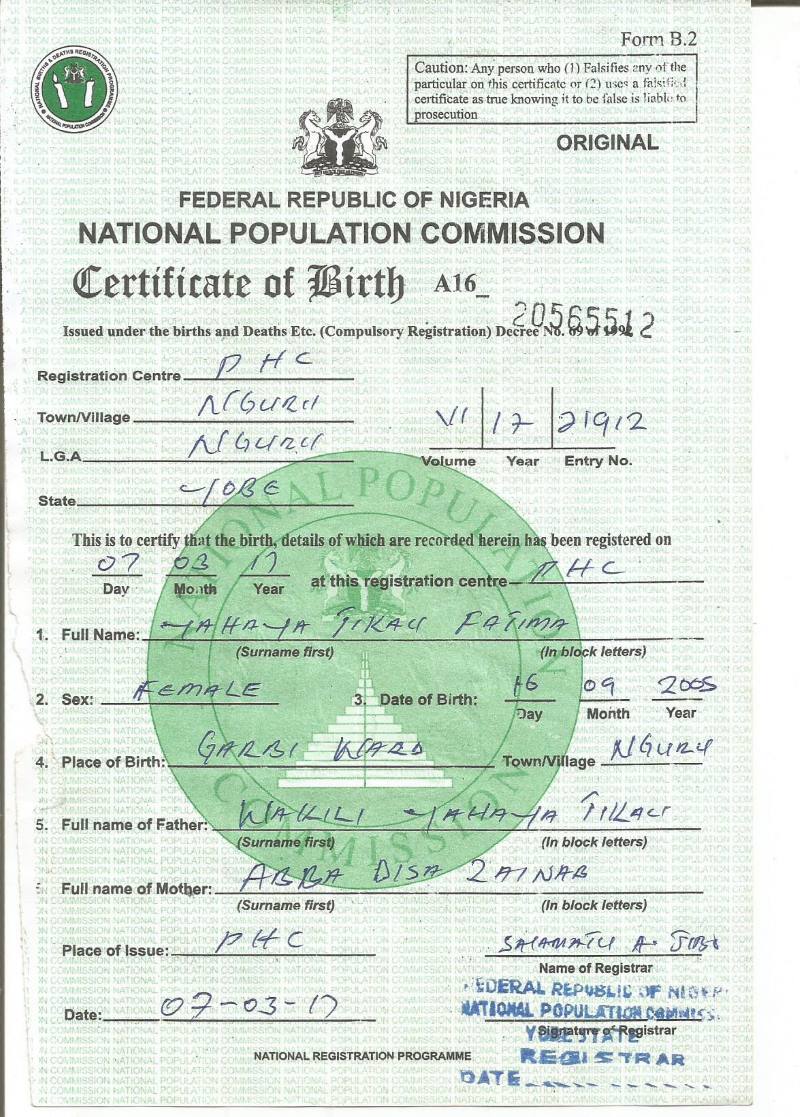 Form B.2
Caution: Any person who (1) Falsifies any of the
particular on this certificate or (2) uses a falsified
certificate as true knowing it to be false is liable to
prosecution
NATIONAL BIRTHS & DEATHS REGISTRATION PROGRAMME
NATIONAL POPULATION COMMISSION
ORIGINAL
FEDERAL REPUBLIC OF NIGERIA
NATIONAL POPULATION COMMISSION
Certificate of Birth A16_
20565512
Issued under the births and Deaths Etc. (Compulsory Registration) Decree No. 69 of 1992
Registration Centre PHC
Town/Village NGURU
L.G.A NGURU
VI 17 21912
Volume Year Entry No.
State YOBE
This is to certify that the birth, details of which are recorded herein has been registered on
07 03 17 at this registration centre PHC
Day Month Year
1. Full Name: YAHAYA TIKAU FATIMA
(Surname first) (In block letters)
2. Sex: FEMALE 3. Date of Birth: 16 09 2005
Day Month Year
4. Place of Birth: GARBI WARD Town/Village NGURU
5. Full name of Father: WAKILI YAHAYA TIKAU
(Surname first) (In block letters)
Full name of Mother: ABBA DISA ZAINAB
(Surname first) (In block letters)
Place of Issue: PHC SALAMATU A.
Name of Registrar
FEDERAL REPUBLIC OF NIGER
Date: 07-03-17 NATIONAL POPULATION COMMISS
Signature of Registrar
YOBE STATE
NATIONAL REGISTRATION PROGRAMME REGISTRAR
DATE
NATIONAL POPULATION COMMISSION